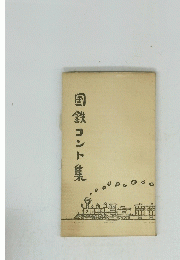 国鉄コント集